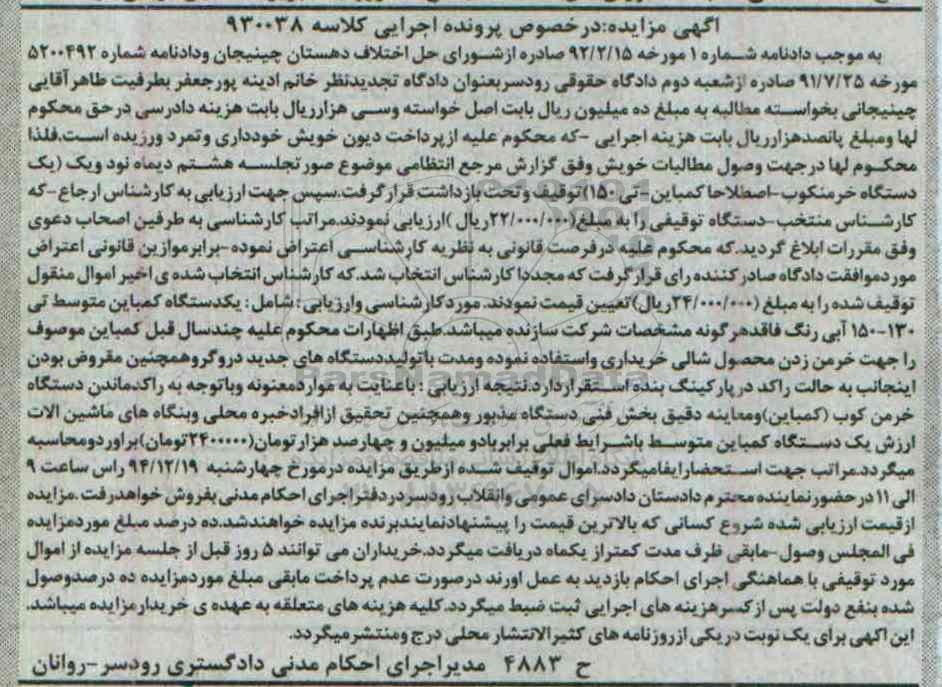 اگهی مزایده:درخصوص پرونده اجرایی کلاسه ۹۳۰۰۳۸
به موجب دادنامه شماره ۱ مورخه ۹۲/۲/۱۵ صادره ازشورای حل اختلاف دهستان چینیجان ودادنامه شماره ۵۲۰۰۴۹۲
مورخه ۹۱/۷/۲۵ صادره ازشعبه دوم دادگاه حقوقی رودسربعنوان دادگاه تجدیدنظر خانم ادینه پورجعفر بطرفیت طاهرآقایی
چینیجانی بخواسته مطالبه به مبلغ ده میلیون ریال بابت اصل خواسته وسی هزارریال بابت هزینه دادرسی درحق محکوم
لها ومبلغ پانصدهزارریال بابت هزینه اجرایی -که محکوم علیه ازپرداخت دیون خویش خودداری وتمرد ورزیده است.فلذا
محکوم لها درجهت وصول مطالبات خویش وفق گزارش مرجع انتظامی موضوع صورتجلسه هشتم دیماه نود ویک (یک
دستگاه خرمنکوب-اصطلاحا کمباین تی ۱۵۰)توقیف وتحت بازداشت قرارگرفت.سپس جهت ارزیابی به کارشناس ارجاع-که
کارشناس منتخب-دستگاه توقیفی را به مبلغ(۲۲/۰۰۰/۰۰۰ریال)ارزیابی نمودند.مراتب کارشناسی به طرفین اصحاب دعوی
وفق مقررات ابلاغ گردید.که محکوم علیه درفرصت قانونی به نظریه کارشناسی اعتراض نموده-برابرموازین قانونی اعتراض
موردموافقت دادگاه صادرکننده رای قرارگرفت که مجددا کارشناس انتخاب شد.که کارشناس انتخاب شده ی اخیر اموال منقول
توقیف شده را به مبلغ (۲۴/۰۰۰/۰۰۰ریال)تعیین قیمت نمودند.موردکارشناسی وارزیابی:شامل: یکدستگاه کمباین متوسط تی
۱۳۰-۱۵۰ آبی رنگ فاقدهرگونه مشخصات شرکت سازنده میباشد.طبق اظهارات محکوم علیه چندسال قبل کمباین موصوف
را جهت خرمن زدن محصول شالی خریداری واستفاده نموده ومدت باتولیددستگاه های جدید دروگروهمچنین مقروض بودن
اینجانب به حالت راکد درپارکینگ بنده استقراردارد.نتیجه ارزیابی: باعنایت به مواردمعنونه وباتوجه به راکدماندن دستگاه
خرمن کوب (کمباین)ومعاینه دقیق بخش فنی دستگاه مذبور وهمچنین تحقیق ازافرادخبره محلی وبنگاه های ماشین الات
ارزش یک دستگاه کمباین متوسط باشرایط فعلی برابربادو میلیون و چهارصد هزارتومان(۲۴۰۰۰۰۰تومان)براوردومحاسبه
میگردد.مراتب جهت استحضارایفامیگردد.اموال توقیف شده ازطریق مزایده درمورخ چهارشنبه ۹۴/۱۲/۱۹ راس ساعت ۹
الی ۱۱ درحضورنماینده محترم دادستان دادسرای عمومی وانقلاب رودسردردفتراجرای احکام مدنی بفروش خواهدرفت.مزایده
ازقیمت ارزیابی شده شروع کسانی که بالاترین قیمت را پیشنهادنمایندبرنده مزایده خواهندشد.ده درصد مبلغ موردمزایده
فی المجلس وصول-مابقی ظرف مدت کمتراز یکماه دریافت میگردد.خریداران می توانند ۵ روز قبل از جلسه مزایده از اموال
مورد توقیفی با هماهنگی اجرای احکام بازدید به عمل اورند درصورت عدم پرداخت مابقی مبلغ موردمزایده ده درصدوصول
شده بنفع دولت پس ازکسرهزینه های اجرایی ثبت ضبط میگردد.کلیه هزینه های متعلقه به عهده ی خریدارمزایده میباشد.
این اگهی برای یک نوبت دریکی ازروزنامه های کثیرالانتشار محلی درج ومنتشرمیگردد.
ح ۴۸۸۳ مدیراجرای احکام مدنی دادگستری رودسر-روانان
ParsNamadData